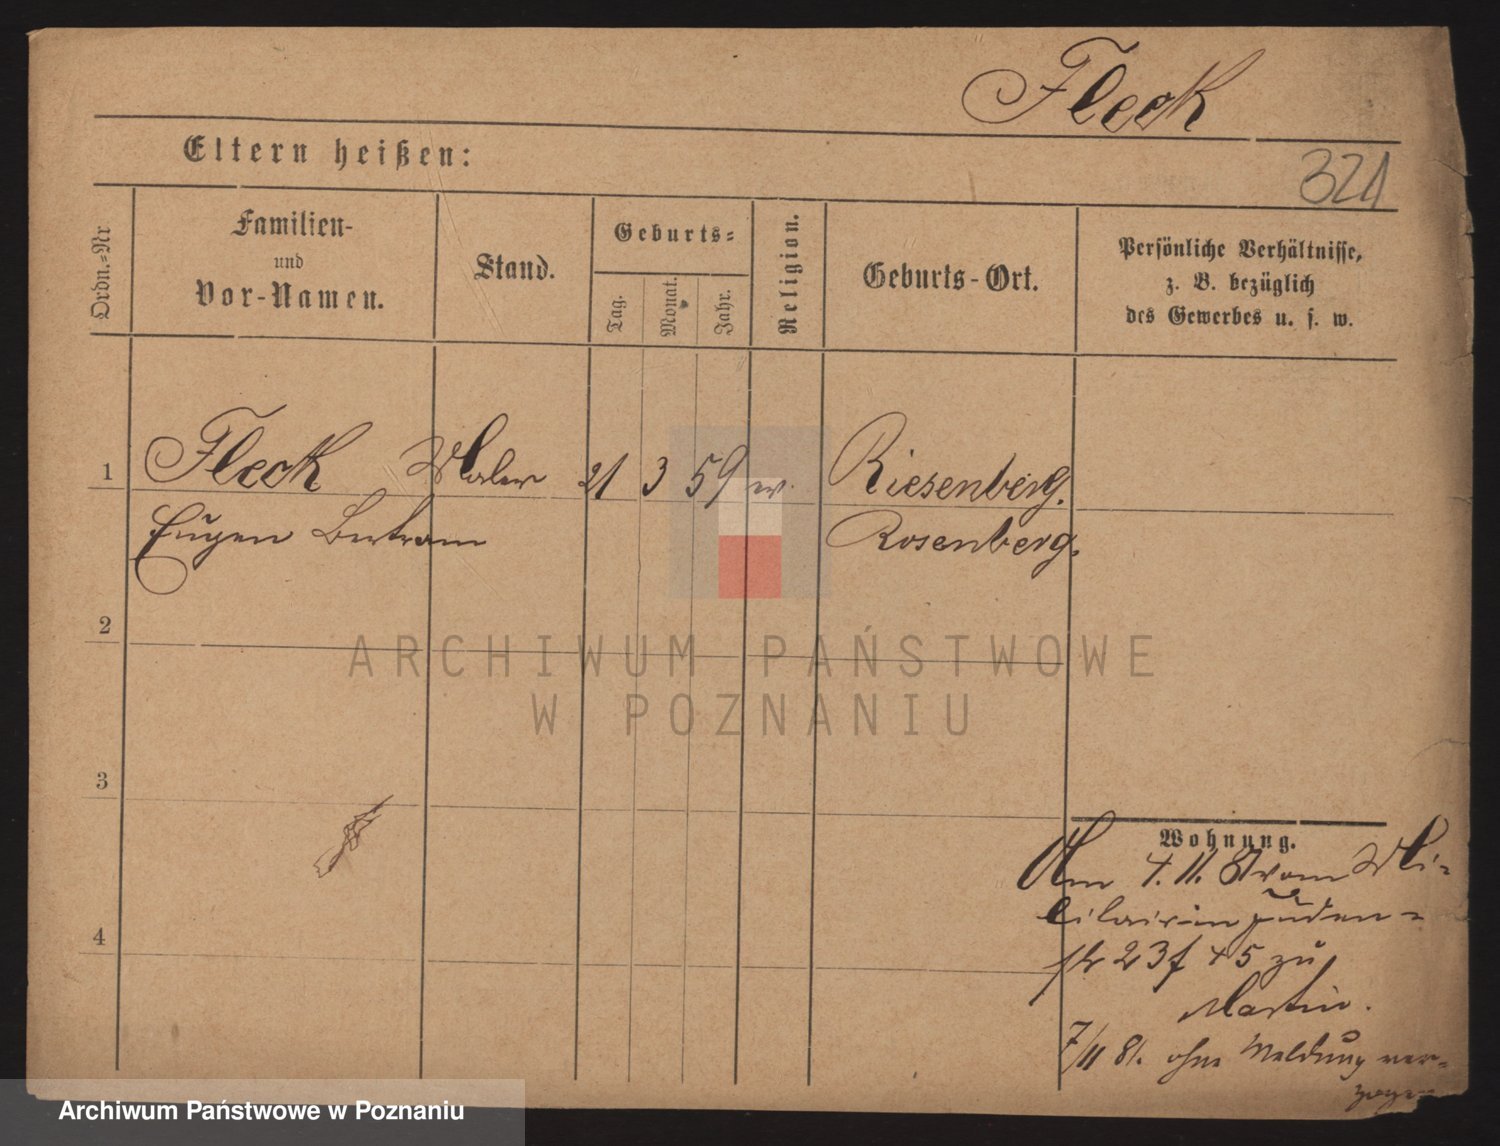 Fleck
Eltern heißen:
321
Ordn.=Nr
Familien-
und
Vor-Namen.
Stand.
Geburts=
Tag.
Monat.
Jahr.
Religion.
Geburts-Ort.
Persönliche Verhältnisse,
z. B. bezüglich
des Gewerbes u. s. w.
1 Fleck Maler 21 3 59 ev. Riesenberg.
Eugen Bertram Rosenberg.
2
ARCHIWUM PAŃSTWOWE
W POZNANIU
3
Wohnung.
Am 4. 11. 81 vom Mi=
litair in Juden=
4
str 23 f 45 zu
Martin.
7/11 81. ohne Meldung ver=
zogen
Archiwum Państwowe w Poznaniu